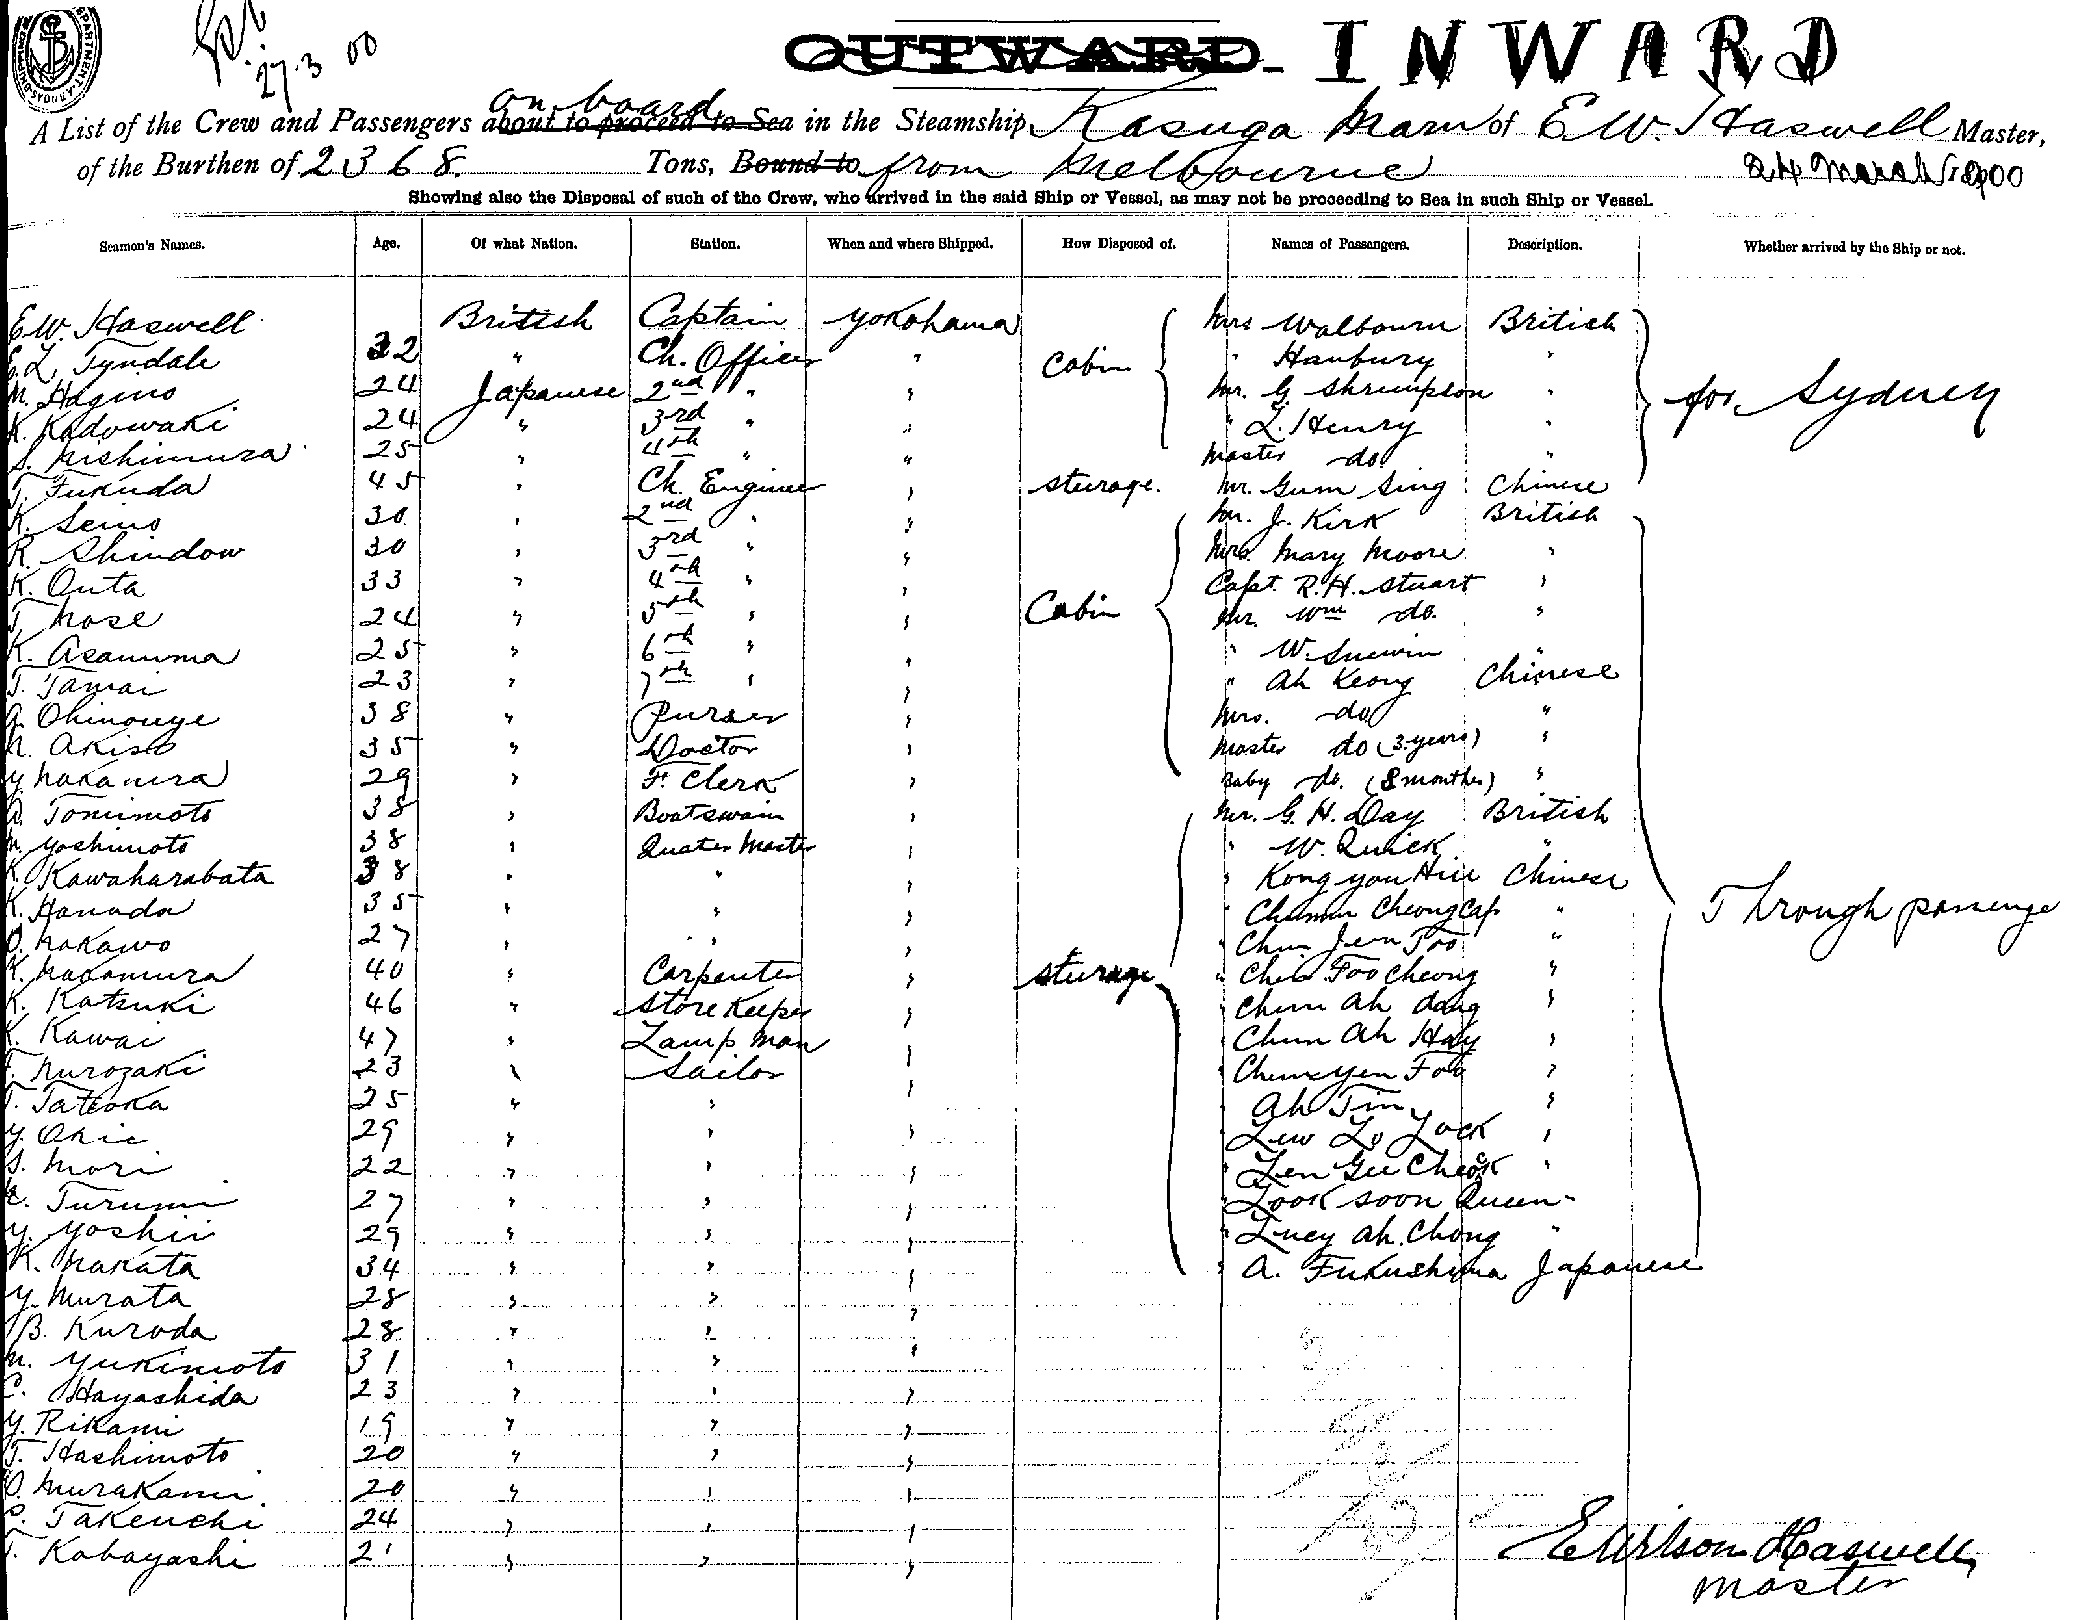 27.3 00
OUTWARD INWARD
on board
A List of the Crew and Passengers about to proceed to Sea in the Steamship Kasuga Maru of E W. Haswell Master,
of the Burthen of 2368. Tons, Bound to from Melbourne 24 March 1900
Showing also the Disposal of such of the Crew, who arrived in the said Ship or Vessel, as may not be proceeding to Sea in such Ship or Vessel.
Seamen's Names. Age. Of what Nation. Station. When and where Shipped. How Disposed of. Names of Passengers. Description. Whether arrived by the Ship or not.
E W. Haswell British Captain Yokohama Mrs Walbourn British
E. L. Tyndale 32 " Ch. Officer " Cabin " Hanbury "
M. Hagino 24 Japanese 2nd " " Mr. G. Shrimpson " for Sydney
K. Kadowaki 24 " 3rd " " " L. Henry "
S. Nishimura 25 " 4th " " Master do "
T. Fukuda 45 " Ch. Engineer " sturage. Mr. Gum Sing Chinese
K. Seino 30 " 2nd " " Mr. J. Kirk British
R. Shindow 30 " 3rd " " Mrs. Mary Moore "
K. Outa 33 " 4th " " Capt. R. H. Stuart "
T. Nose 24 " 5th " " Cabin Mr. Wm do. "
K. Asanuma 25 " 6th " " " W. "
T. Tamai 23 " 7th " " " Ah Keong Chinese
Ohinouye 38 " Purser " Mrs. do "
Akiso 35 " Doctor " Master do (3 years) "
Y. 29 " F. Clerk " Baby do. (8 months) "
Tomimoto 38 " Boatswain " Mr. G. H. Day British
Yoshimoto 38 " Quater Master " " W. Quick "
K. Kawaharabata 38 " " " " Kong you Chinese
K. Hanada 35 " " " " Cheong Cap "
Nakawo 27 " " " " Chun "
K. Nakamura 40 " Carpenter " sturage " Foo Cheong " Through passenge
K. Katsuki 46 " Store Keeper " " Ah "
K. Kawai 47 " Lamp Man " " Chun Ah Hay "
Kurozaki 23 " Sailor " " Yen Foo "
T. Tateoka 25 " " " " Ah Tim "
Y. Okie 29 " " " " Lew Lo Lock "
S. Mori 22 " " " " Gee "
Turumi 27 " " " " Look Soon Queen "
Y. Yoshii 29 " " " " Lucy Ah. Chong "
K. Nakata 34 " " " " A. Fukushima Japanese
Y. Murata 28 " " "
B. Kuroda 28 " " "
Yukimoto 31 " " "
Hayashida 23 " " "
Y. Rikami 19 " " "
T. Hashimoto 20 " " "
Murakami 20 " " "
Takeuchi 24 " " "
T. Kobayashi 21 " " "
E Wilson Haswell
Master